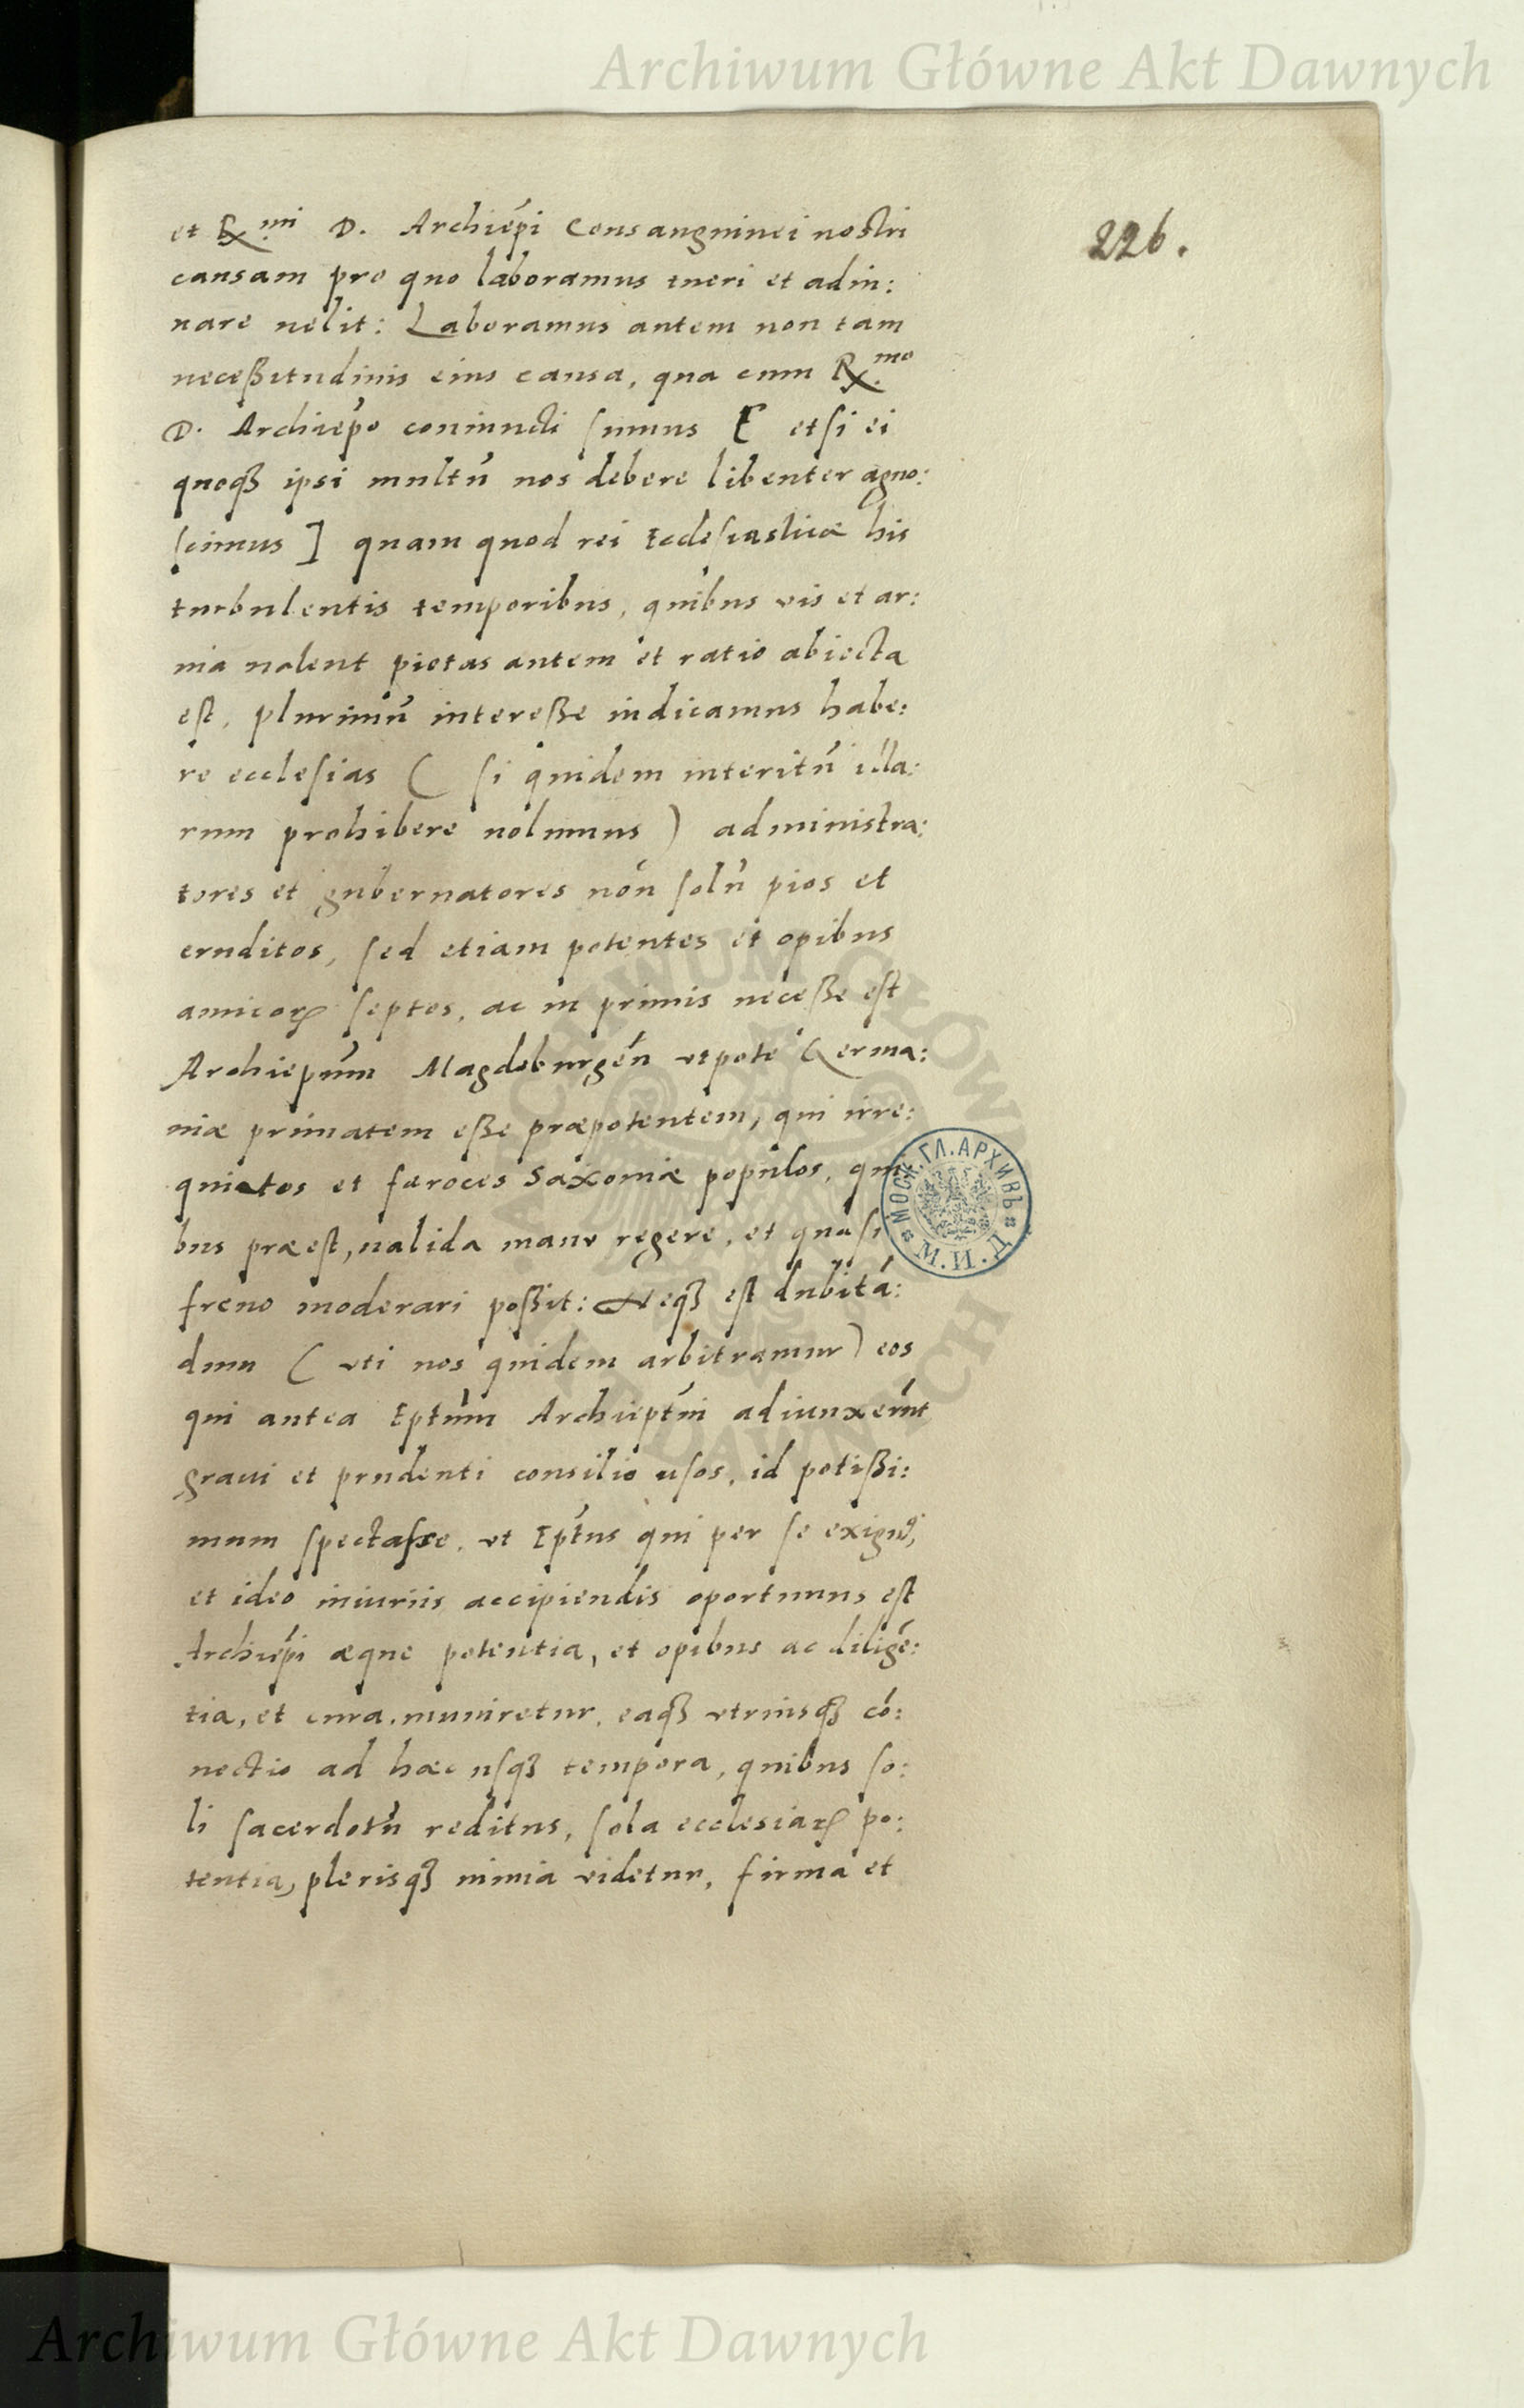 Archiwum Główne Akt Dawnych
226.
et R.mi D. Archiep̃i Consanguinei nostri
causam pro quo laboramus tueri et adiu:
uare uelit: Laboramus autem non tam
neceßitudinis eius causa, qua cum R.mo
D. Archiep̃o coniuncti sumus [ etsi ei
quoqȝ ipsi multũ nos debere libenter agno:
scimus ] quam quod rei Ecclesiasticæ his
turbulentis temporibus, quibus vis et ar:
ma ualent pietas autem et ratio abiecta
est, plurimũ intereße iudicamus habe:
re ecclesias ( si quidem interitũ illa:
rum prohibere uolumus ) administra:
tores et gubernatores non solũ pios et
eruditos, sed etiam potentes et opibus
amicoꝝ septos, ac in primis neceße est
Archiep̃um Magdeburgeñ vtpote Germa:
niæ primatem eße præpotentem, qui irre:
quietos et færoces Saxoniæ populos, qui
bus præest, ualida manu regere, et quasi
freno moderari poßit: Neqȝ est dubitã:
dum ( vti nos quidem arbitramur ) eos
qui antea Ep̃tum Archiep̃tui adiunxerũt
graui et prudenti consilio usos, id potißi:
mum spectasse, vt Ep̃tus qui per se exiguꝰ,
et ideo iniuriis accipiendis oportunus est
Archiep̃i æque potentia, et opibus ac diligẽ:
tia, et cura, muniretur, eaqȝ vtriusqȝ cõ:
nectio ad hæc usqȝ tempora, quibus so:
li sacerdotũ reditus, sola ecclesiaꝝ po:
tentia, plerisqȝ nimia videtur, firma et
МОСК. ГЛ. АРХИВЪ
М. И. Д.
Archiwum Główne Akt Dawnych